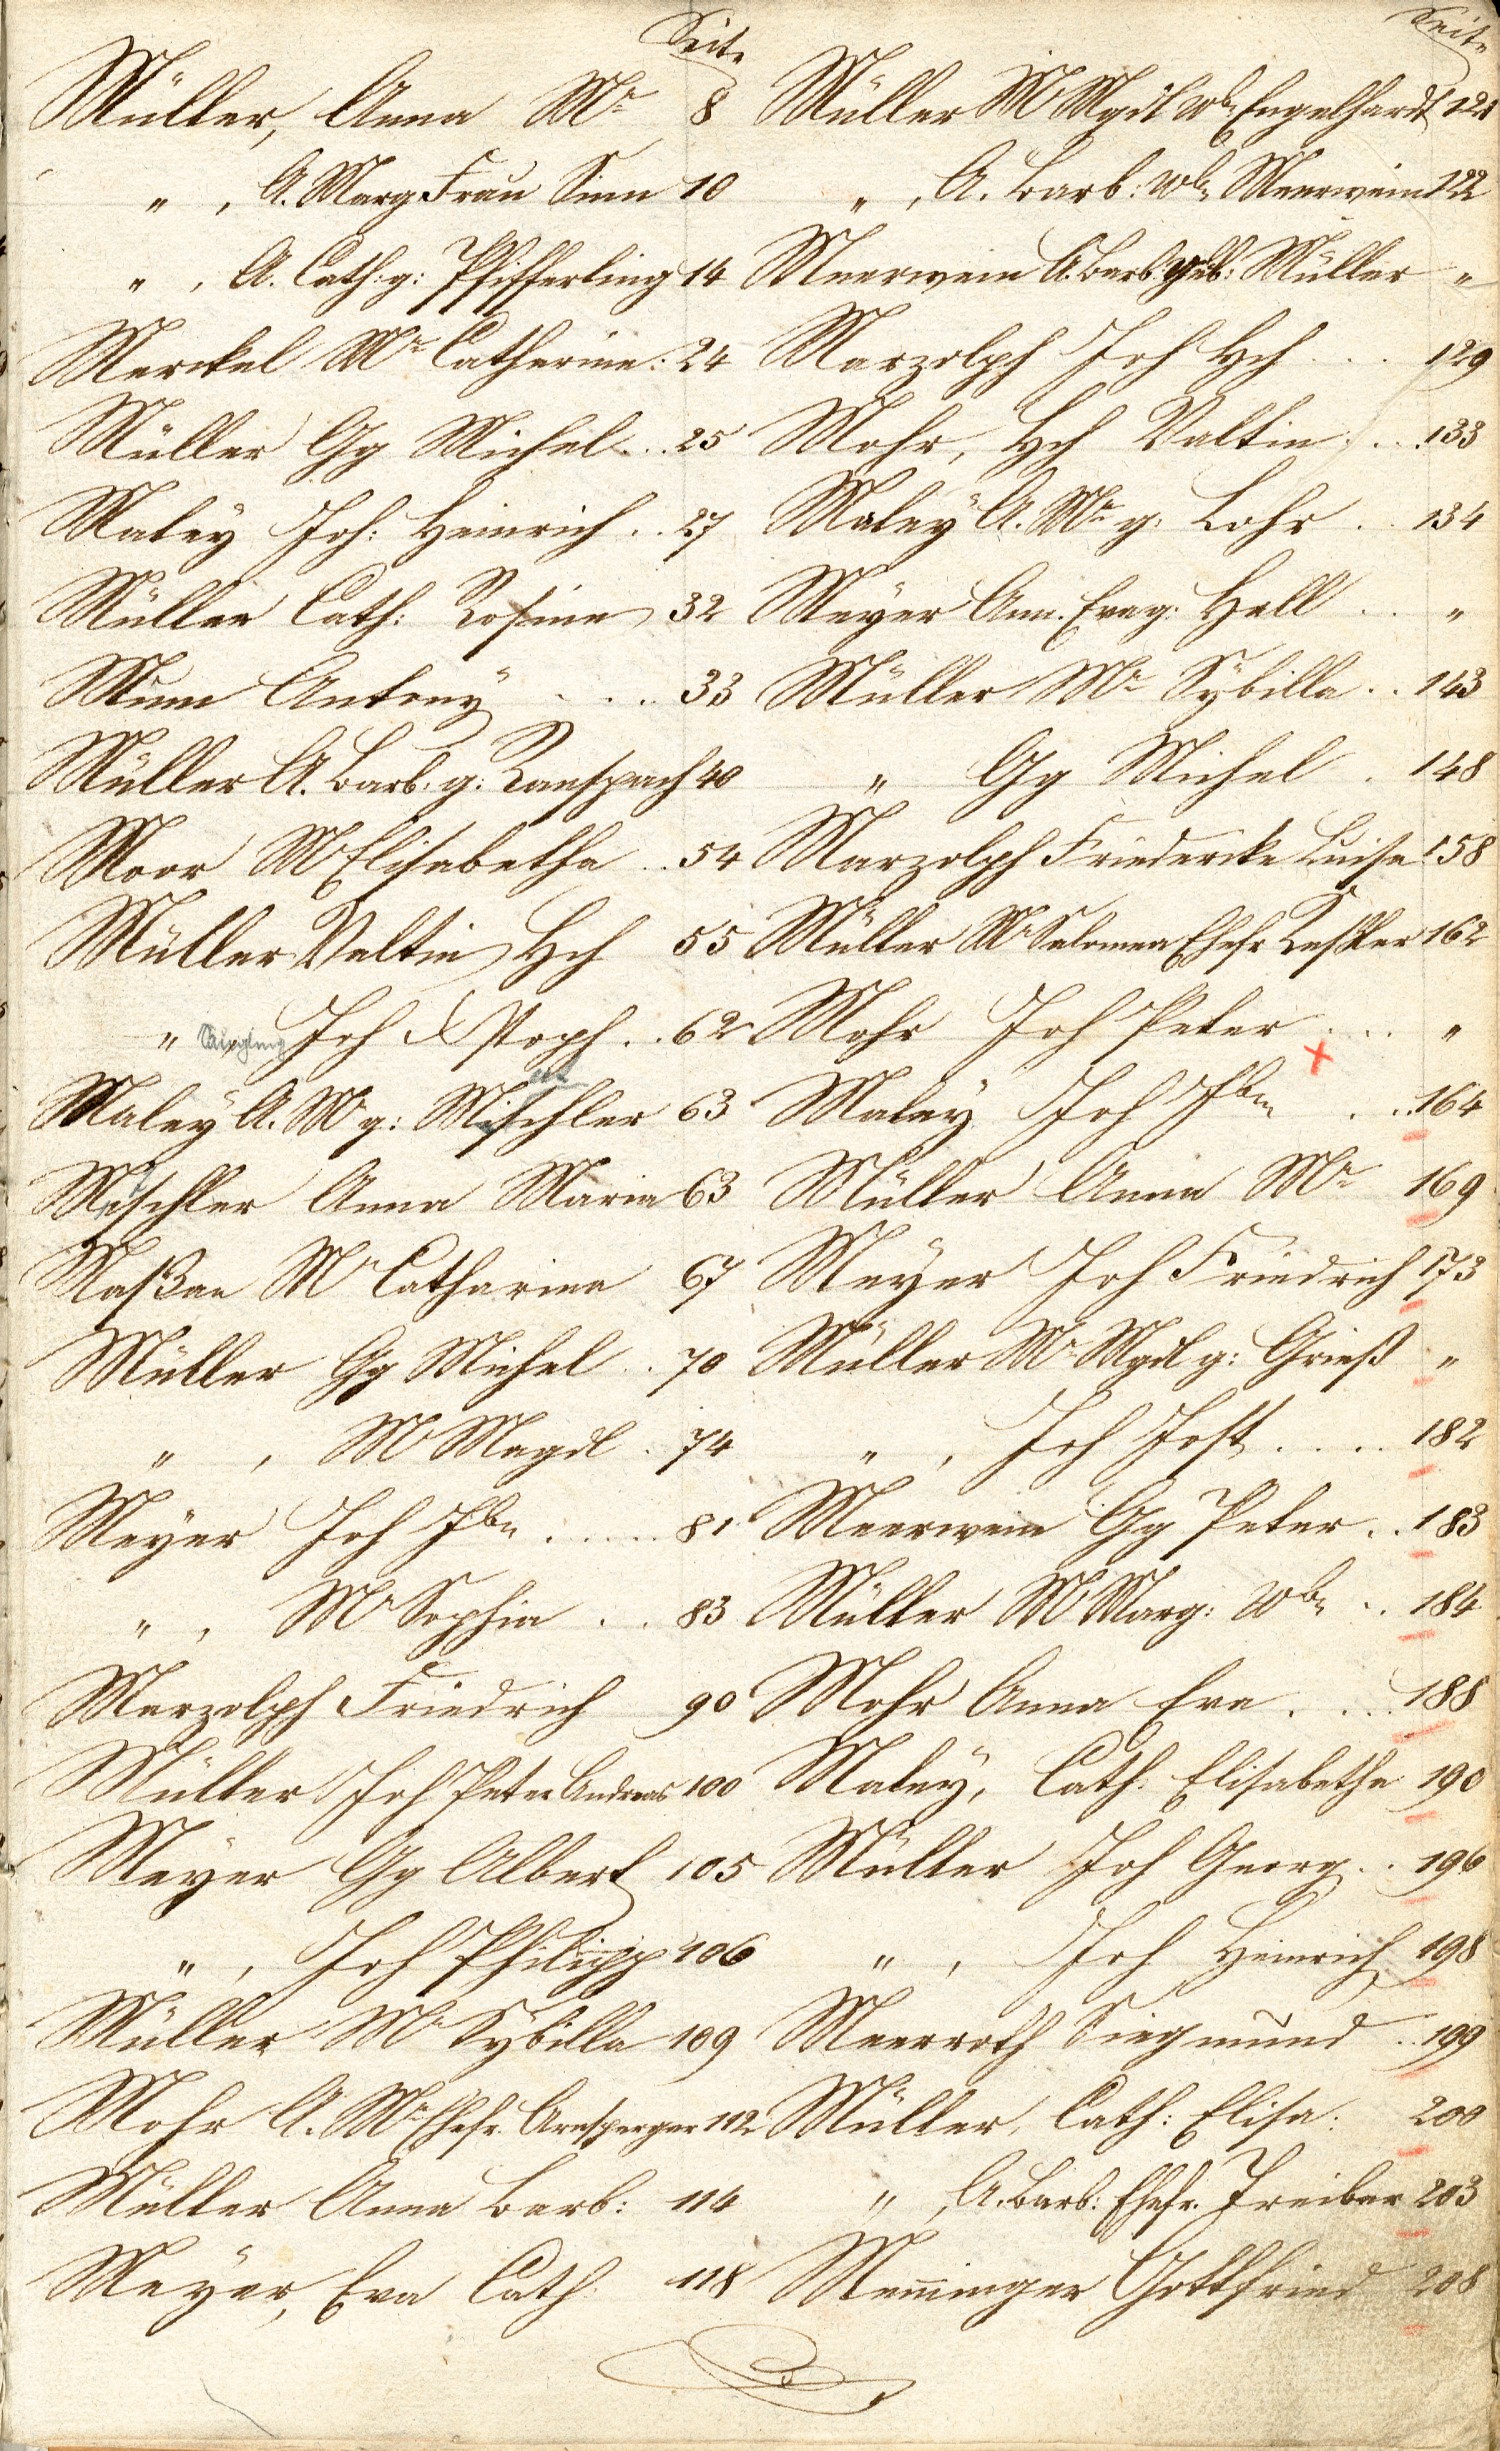 Seite
Müller, Anna Mr 8
" , A. Marg Frau Sinn 10
" , A. Cath: g: Pfifferling 14
Merckel Mr Catherine: 24
Müller Gg Michel . . . 25
Maley Joh: Heinrich . . 27
Müller Cath: Rosina 32
Mum Antony . . . . 33
Müller A. Barb. g: Ranspach 40
Moor M Elisabetha . . 54
Müller Valtin Hch 55
" Joh Xstoph . . 62
Maley A. M g: Mischler 63
Mischler Anna Maria 63
Maßan Mr Catharina 67
Müller Gg Michel . . 70
" , M Magdl . 74
Meyer Joh Jbn . . . . . 81
" , M Sophia . . . 83
Marzolph Friedrich 90
Müller Joh Peter Andreas 100
Meyer Gg Albert 105
" , Joh Philipp 106
Müller Mr Sybilla 109
Mohr A. Mr Ehefr. Arnsperger 112
Müller Anna Barb: 114
Meyer, Eva Cath. 118
Seite
Müller M Mgdl Wbe Engelhardt 121
" , A. Barb: Wbe Meerwein 122
Meerwein A. Barb. geb: Müller "
Marzolph Joh Hch . . . 129
Mohr, Hch Valtin . . . 133
Maley A. Mr g: Lohr . . 134
Meyer Ann. Eva g: Hell . . "
Müller Mr Sybilla . . 143
" Gg Michel . 148
Marzolph Friedericke Luise 158
Müller Mr Salomea Ehefr Kessler 162
Mohr Joh Peter . . . "
Maley Joh Jbn . . . 164
Müller Anna Mr 169
Meyer Joh Friedrich 173
Müller Mr Mgdl g: Grieß "
" , Joh Jost . . . . 182
Meerwein Gg Peter . . 183
Müller M Marg: Wbe . . 184
Mohr Anna Eva . . . . 188
Maley, Cath: Elisabetha 190
Müller Joh Georg . . 196
" , Joh Heinrich 198
Meerroth Siegmund . . 199
Müller, Cath: Elisa: 200
" , A. Barb: Ehefr. Treiber 203
Menninger Gottfried 208